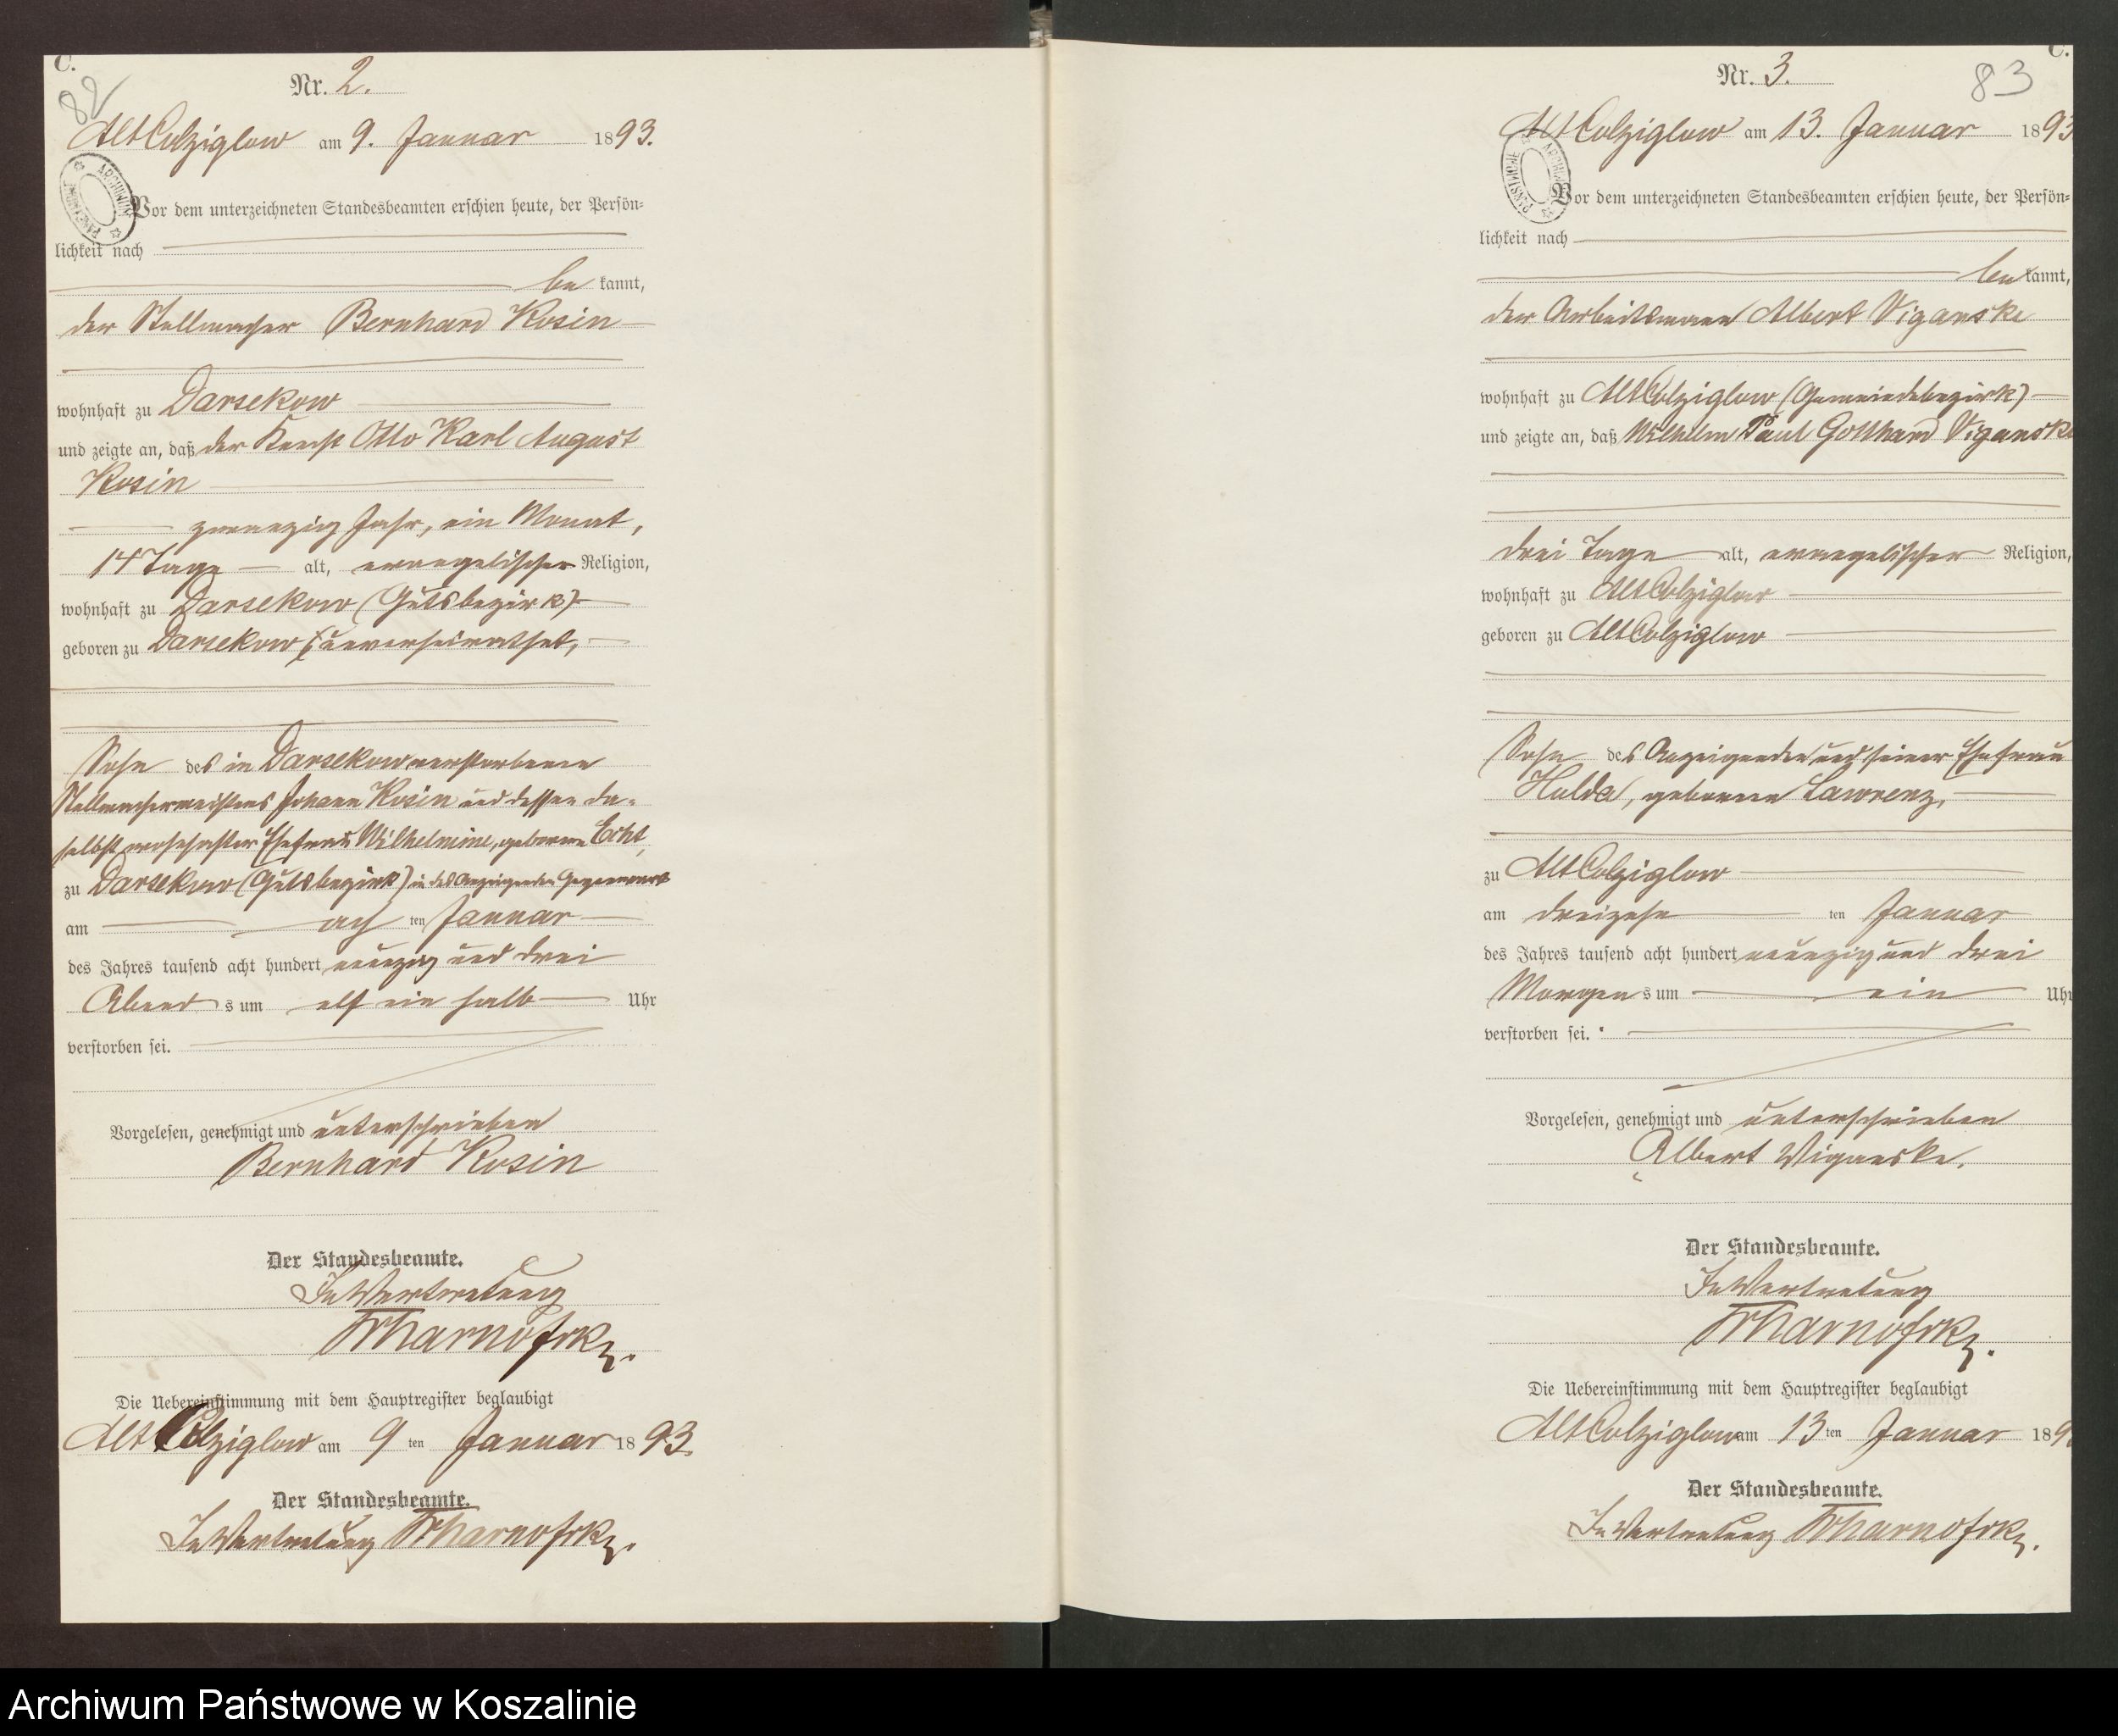 C.
82
Nr. 2.
Alt Colziglow am 9. Januar 1893.
Vor dem unterzeichneten Standesbeamten erschien heute, der Persön-
lichkeit nach
be kannt,
der Stellmacher Bernhard Kosin
wohnhaft zu Darsekow
und zeigte an, daß der Knecht Otto Karl August
Kosin
zwanzig Jahr, ein Monat,
14 Tage alt, evangelischer Religion,
wohnhaft zu Darsekow (Gutsbezirk)
geboren zu Darsekow, unverheirathet,
Sohn des in Darsekow verstorbenen
Stellmachermeisters Johann Kosin und dessen da-
selbst wohnhafter Ehefrau Wilhelmine, geborene Echt,
zu Darsekow (Gutsbezirk) in des Anzeigenden Gegenwart
am ach ten Januar
des Jahres tausend acht hundert neunzig und drei
Abend s um elf ein halb Uhr
verstorben sei.
Vorgelesen, genehmigt und unterschrieben
Bernhard Kosin
Der Standesbeamte.
In Vertretung
Die Uebereinstimmung mit dem Hauptregister beglaubigt
Alt Colziglow am 9 ten Januar 1893.
Der Standesbeamte.
In Vertretung
C.
83
Nr. 3.
Alt Colziglow am 13. Januar 1893
Vor dem unterzeichneten Standesbeamten erschien heute, der Persön-
lichkeit nach
be kannt,
der Arbeitsmann Albert Viganske
wohnhaft zu Alt Colziglow (Gemeindebezirk)
und zeigte an, daß Wilhelm Paul Gotthard Viganske
drei Tage alt, evangelischer Religion,
wohnhaft zu Alt Colziglow
geboren zu Alt Colziglow
Sohn des Anzeigenden und seiner Ehefrau
Hulda, geborene Lawrenz,
zu Alt Colziglow
am dreizehn ten Januar
des Jahres tausend acht hundert neunzig und drei
Morgen s um ein Uhr
verstorben sei.
Vorgelesen, genehmigt und unterschrieben
Albert Viganske.
Der Standesbeamte.
In Vertretung
Die Uebereinstimmung mit dem Hauptregister beglaubigt
Alt Colziglow am 13 ten Januar 189
Der Standesbeamte.
In Vertretung
Archiwum Państwowe w Koszalinie